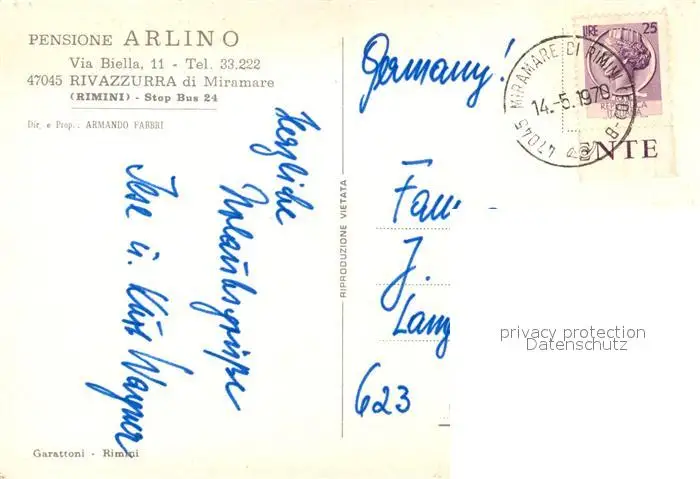 PENSIONE ARLINO
Via Biella, 11 - Tel. 33.222
47045 RIVAZZURRA di Miramare
(RIMINI) - Stop Bus 24
Dir. e Prop.: ARMANDO FABBRI
Herzliche
Urlaubsgrüße
Ilse u. Kurt Wagner
Garattoni - Rimini
RIPRODUZIONE VIETATA
Germany!
LIRE 25
47045 MIRAMARE DI RIMINI (FO)-B
14.-5.1970
NTE
Fam
J.
Lang
623
privacy protection
Datenschutz